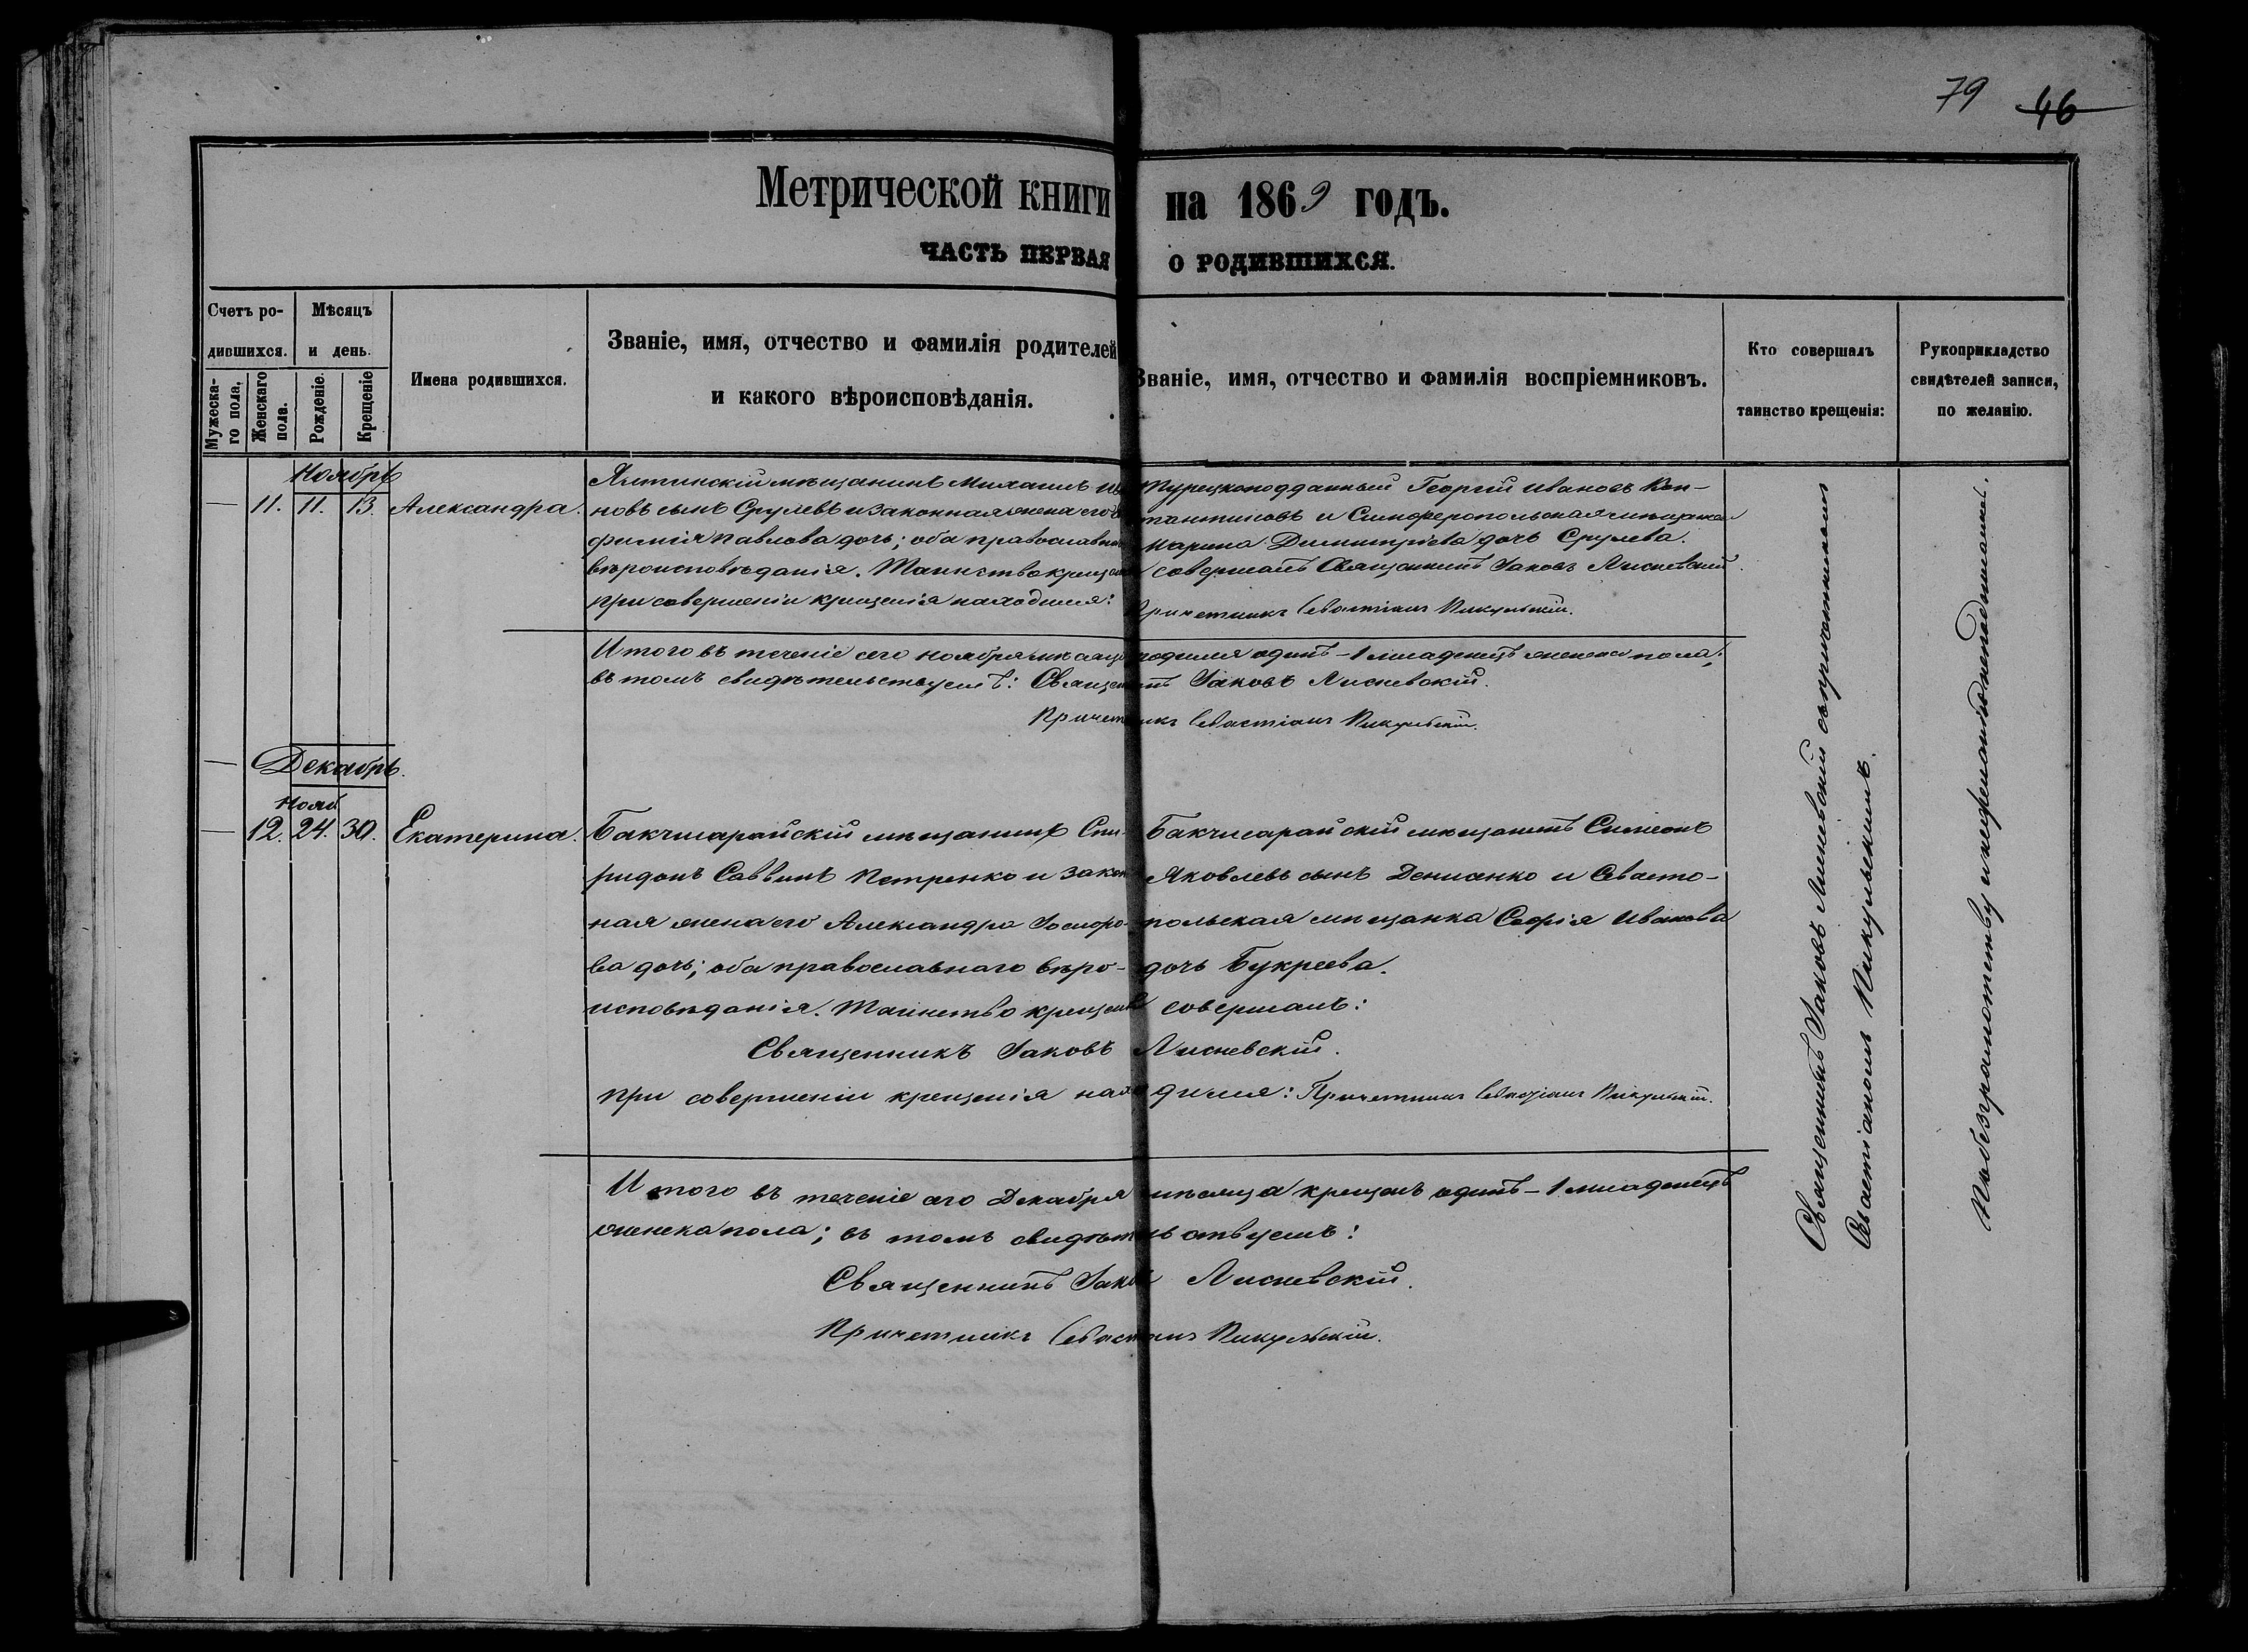 79 46
Метрической книги на 1869 годъ.
часть первая о родившихся.
Счетъ родившихся.
Мужеска-го пола.
Женскаго пола.
Мѣсяцъ и день.
Рожденіе.
Крещеніе
Имена родившихся.
Званіе, имя, отчество и фамилія родителей
и какого вѣроисповѣданія.
Званіе, имя, отчество и фамилія воспріемниковъ.
Кто совершалъ
таинство крещенія:
Рукоприкладство
свидѣтелей записи,
по желанію.
Ноябрь
— 11. 11. 13. Александра.
Ялтинскій мѣщанинъ Михаилъ Ива
новъ сынъ Срулевъ и законная жена его
фимія Павлова дочь; оба православнаго
вѣроисповѣданія. Таинство крещенія
при совершеніи крещенія находился:
Турецкоподданный Георгій Ивановъ Кон-
стантиновъ и Симферопольская мѣщанка
Марина Димитріева дочь Срулева.
совершалъ Священникъ Іаковъ Лисневскій.
Причетникъ Севастіанъ Пикульскій.
Итого въ теченіе сего Ноября мѣсяца родился одинъ – 1 младенецъ женска пола;
въ томъ свидѣтельствуемъ: Священникъ Іаковъ Лисневскій.
Причетникъ Севастіанъ Пикульскій.
— Декабрь.
Нояб
— 12. 24. 30. Екатерина.
Бакчисарайскій мѣщанинъ Спи-
ридонъ Саввинъ Петренко и закон
ная жена его Александра
ва дочь; оба православнаго вѣро-
исповѣданія. Таинство крещенія совершалъ:
Бакчисарайскій мѣщанинъ Симеонъ
Яковлевъ сынъ Денисенко и Севасто-
польская мѣщанка Софія Иванова
дочь Букреева.
Священникъ Іаковъ Лисневскій.
при совершеніи крещенія находился: Причетникъ Севастіанъ Пикульскій.
Итого въ теченіе сего Декабря мѣсяца крещенъ одинъ – 1 младенецъ
женска пола; въ томъ свидѣтельствуемъ:
Священникъ Іаковъ Лисневскій.
Причетникъ Севастіанъ Пикульскій.
Священникъ Іаковъ Лисневскій съ причетникомъ
Севастіаномъ Пикульскимъ.
По безграмотству